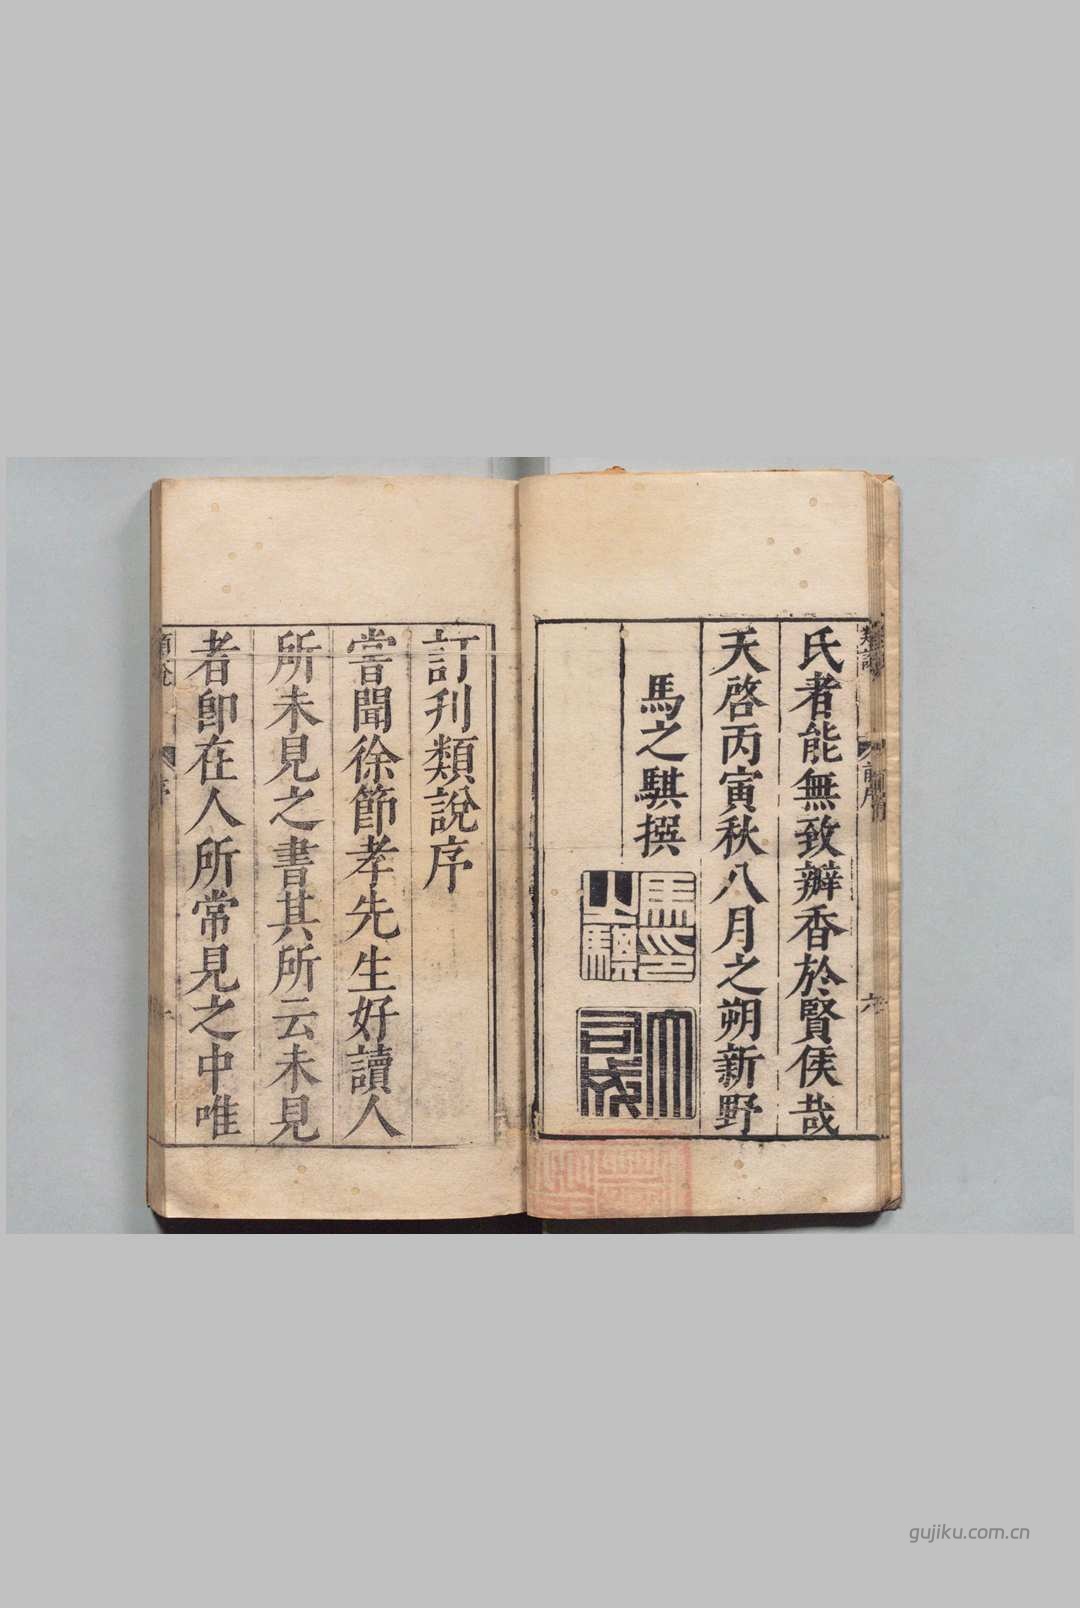 氏者能無致瓣香於賢侯哉
天啓丙寅秋八月之朔新野
馬之騏撰
訂刊類說序
嘗聞徐節孝先生好讀人
所未見之書其所云未見
者卽在人所常見之中唯
gujiku.com.cn